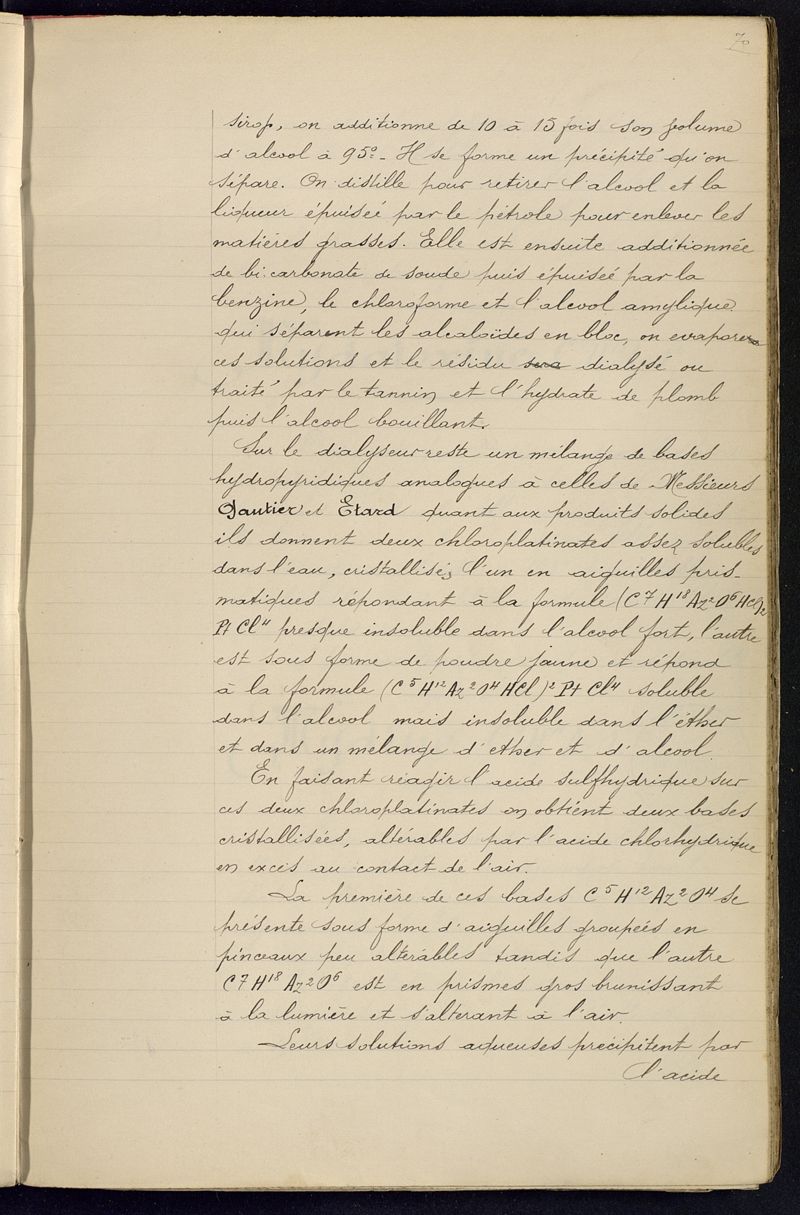 70
sirop, on additionne de 10 à 15 fois son volume
d'alcool à 95°. Il se forme un précipité qu'on
sépare. On distille pour retirer l'alcool et la
liqueur épuiseé par le pétrole pour enlever les
matières grasses. Elle est ensuite additionnée
de bicarbonate de soude puis épuiseé par la
benzine, le chloroforme et l'alcool amylique
qui séparent les alcaloïdes en bloc, on evapore
ces solutions et le résidu sera dialysé ou
traité par le tannin et l'hydrate de plomb
puis l'alcool bouillant.
Sur le dialyseur reste un mélange de bases
hydropyridiques analogues à celles de Messieurs
Gautier et Etard quant aux produits solides
ils donnent deux chloroplatinates assez solubles
dans l'eau, cristallisés l'un en aiguilles pris-
matiques répondant à la formule (C⁷H¹⁸Az²O⁶HCl)²
Pt Cl⁴ presque insoluble dans l'alcool fort, l'autre
est sous forme de poudre jaune et répond
à la formule (C⁵H¹²Az²O⁴HCl)² Pt Cl⁴ soluble
dans l'alcool mais insoluble dans l'éther
et dans un mélange d'ether et d'alcool.
En faisant réagir l'acide sulfhydrique sur
ces deux chloroplatinates on obtient deux bases
cristallisées, altérables par l'acide chlorhydrique
en excés au contact de l'air.
La première de ces bases C⁵H¹²Az²O⁴ se
présente sous forme d'aiguilles groupeés en
pinceaux peu altérables tandis que l'autre
C⁷H¹⁸Az²O⁶ est en prismes gros brunissant
à la lumière et s'altérant à l'air.
Leurs solutions aqueuses precipitent par
l'acide